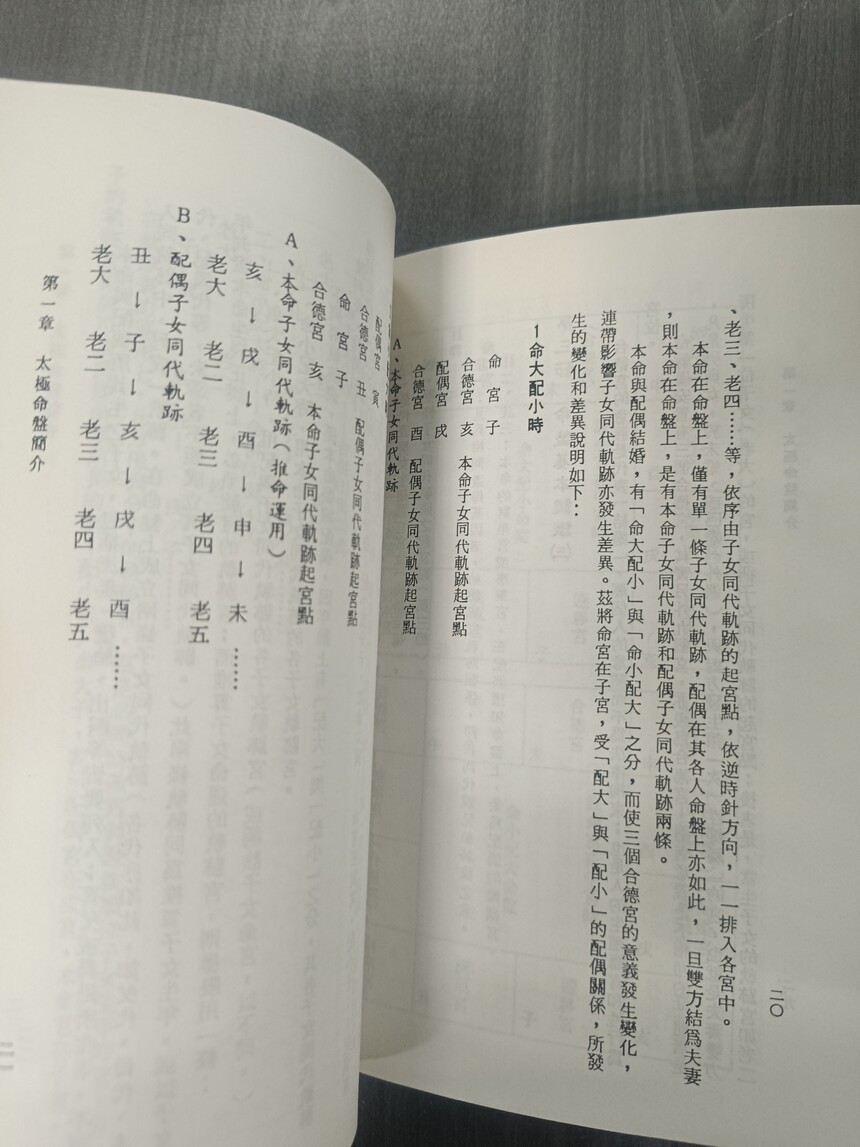 二〇
、老三、老四……等，依序由子女同代軌跡的起宮點，依逆時針方向，一一排入各宮中。
本命在命盤上，僅有單一條子女同代軌跡，配偶在其各人命盤上亦如此，一旦雙方結爲夫妻
，則本命在命盤上，是有本命子女同代軌跡和配偶子女同代軌跡兩條。
本命與配偶結婚，有「命大配小」與「命小配大」之分，而使三個合德宮的意義發生變化，
連帶影響子女同代軌跡亦發生差異。茲將命宮在子宮，受「配大」與「配小」的配偶關係，所發
生的變化和差異說明如下：
1命大配小時
命　宮　子
合德宮　亥　本命子女同代軌跡起宮點
配偶宮　戌
合德宮　酉　配偶子女同代軌跡起宮點
A、本命子女同代軌跡
配偶宮　寅
合德宮　丑　配偶子女同代軌跡起宮點
命　宮　子
合德宮　亥　本命子女同代軌跡起宮點
A、本命子女同代軌跡（推命運用）
亥→戌→酉→申→未……
老大　老二　老三　老四　老五
B、配偶子女同代軌跡
丑→子→亥→戌→酉……
老大　老二　老三　老四　老五
第一章　太極命盤簡介